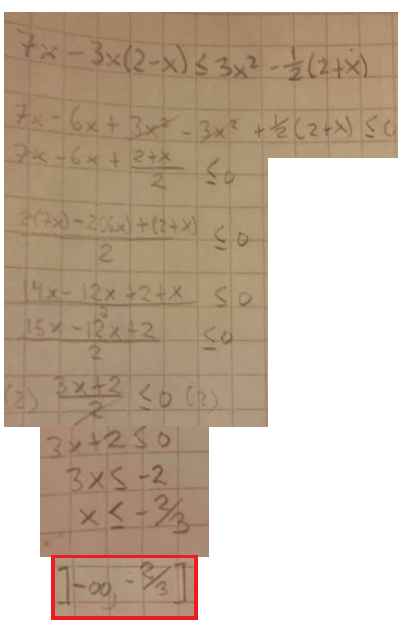 7x - 3x(2-x) ≤ 3x² - 1/2(2+x)
7x - 6x + 3x² - 3x² + 1/2(2+x) ≤ 0
7x - 6x + (2+x)/2 ≤ 0
(2(7x) - 2(6x) + (2+x))/2 ≤ 0
(14x - 12x + 2 + x)/2 ≤ 0
(15x - 12x + 2)/2 ≤ 0
(2) (3x+2)/2 ≤ 0 (2)
3x + 2 ≤ 0
3x ≤ -2
x ≤ -2/3
]-∞, -2/3]